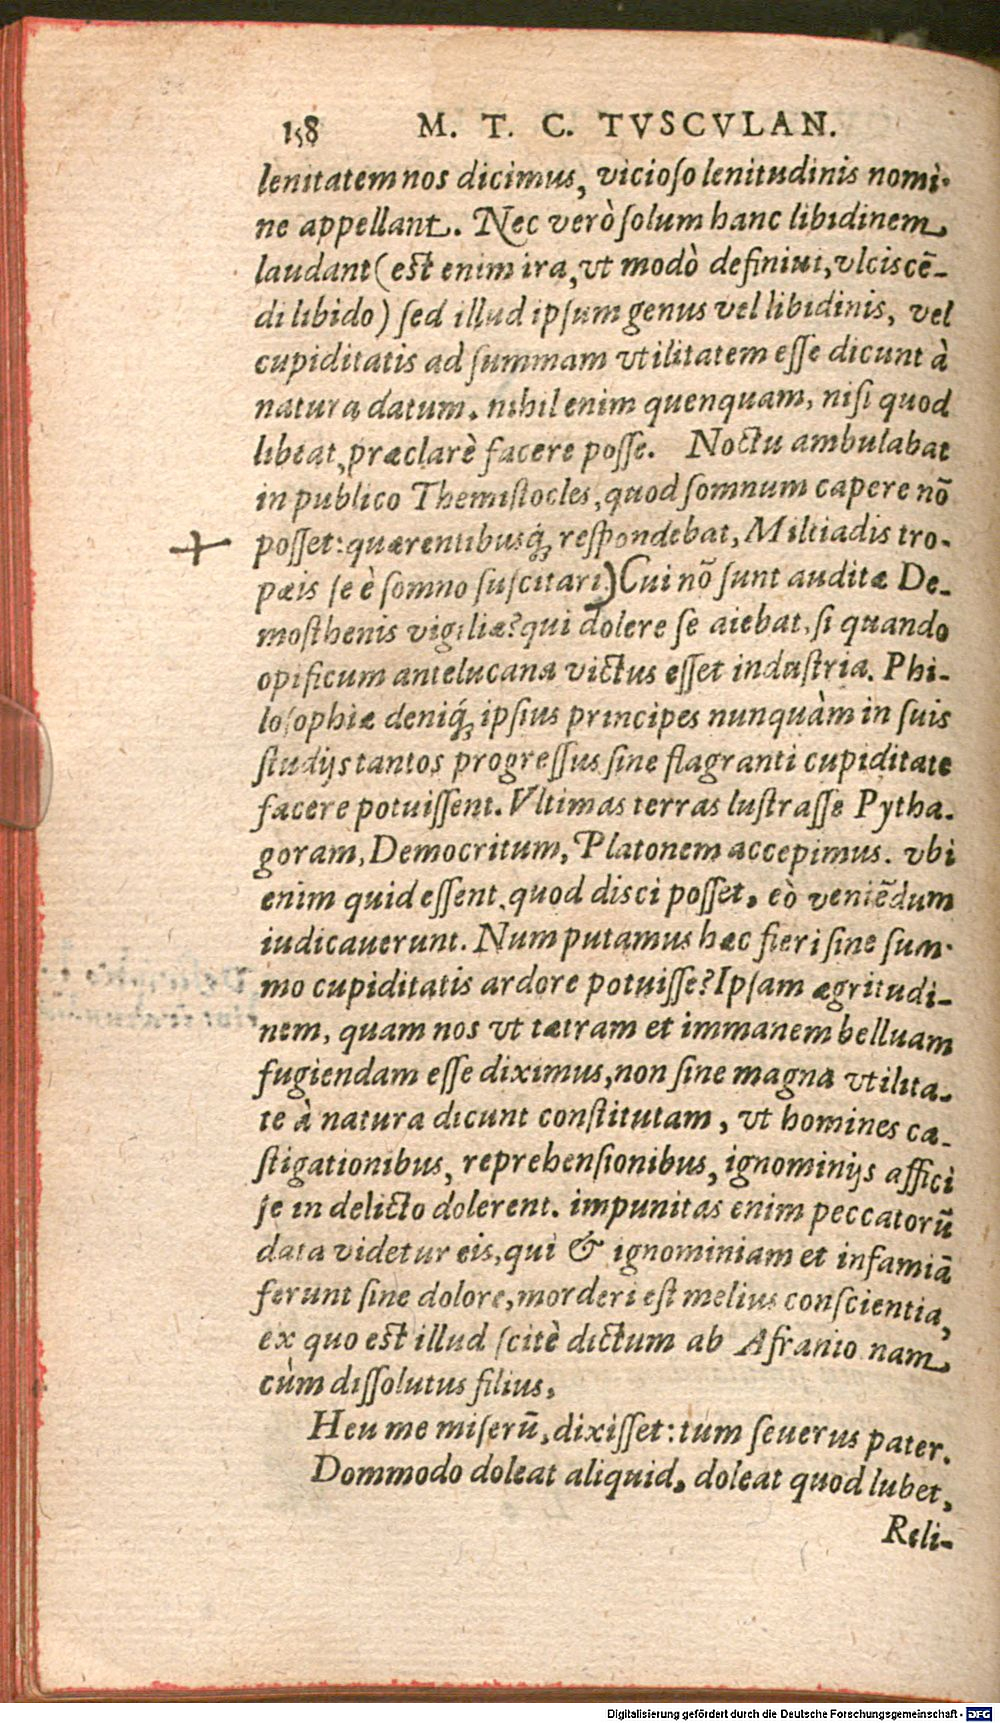 158 M. T. C. TVSCVLAN.
lenitatem nos dicimus, vicioso lenitudinis nomi-
ne appellant. Nec verò solum hanc libidinem
laudant (est enim ira, vt modò definiui, vlciscē-
di libido) sed illud ipsum genus vel libidinis, vel
cupiditatis ad summam vtilitatem esse dicunt à
natura datum. nihil enim quenquam, nisi quod
libeat, præclarè facere posse. Noctu ambulabat
in publico Themistocles, quod somnum capere nō
posset: quærentibusq́; respondebat, Miltiadis tro-
pæis se è somno suscitari.) Cui nō sunt auditæ De-
mosthenis vigiliæ? qui dolere se aiebat, si quando
opificum antelucana victus esset industria. Phi-
losophiæ deniq́; ipsius principes nunquàm in suis
studijs tantos progressus sine flagranti cupiditate
facere potuissent. Vltimas terras lustrasse Pytha-
goram, Democritum, Platonem accepimus. vbi
enim quid essent, quod disci posset, eò veniēdum
iudicauerunt. Num putamus hæc fieri sine sum-
mo cupiditatis ardore potuisse? Ipsam ægritudi-
nem, quam nos vt tætram et immanem belluam
fugiendam esse diximus, non sine magna vtilita-
te à natura dicunt constitutam, vt homines ca-
stigationibus, reprehensionibus, ignominijs affici
se in delicto dolerent. impunitas enim peccatorū
data videtur eis, qui & ignominiam et infamiā
ferunt sine dolore, morderi est melius conscientia,
ex quo est illud scitè dictum ab Afranio nam,
cùm dissolutus filius,
Heu me miserū, dixisset: tum seuerus pater.
Dommodo doleat aliquid, doleat quod lubet,
Reli-
Digitalisierung gefördert durch die Deutsche Forschungsgemeinschaft - DFG